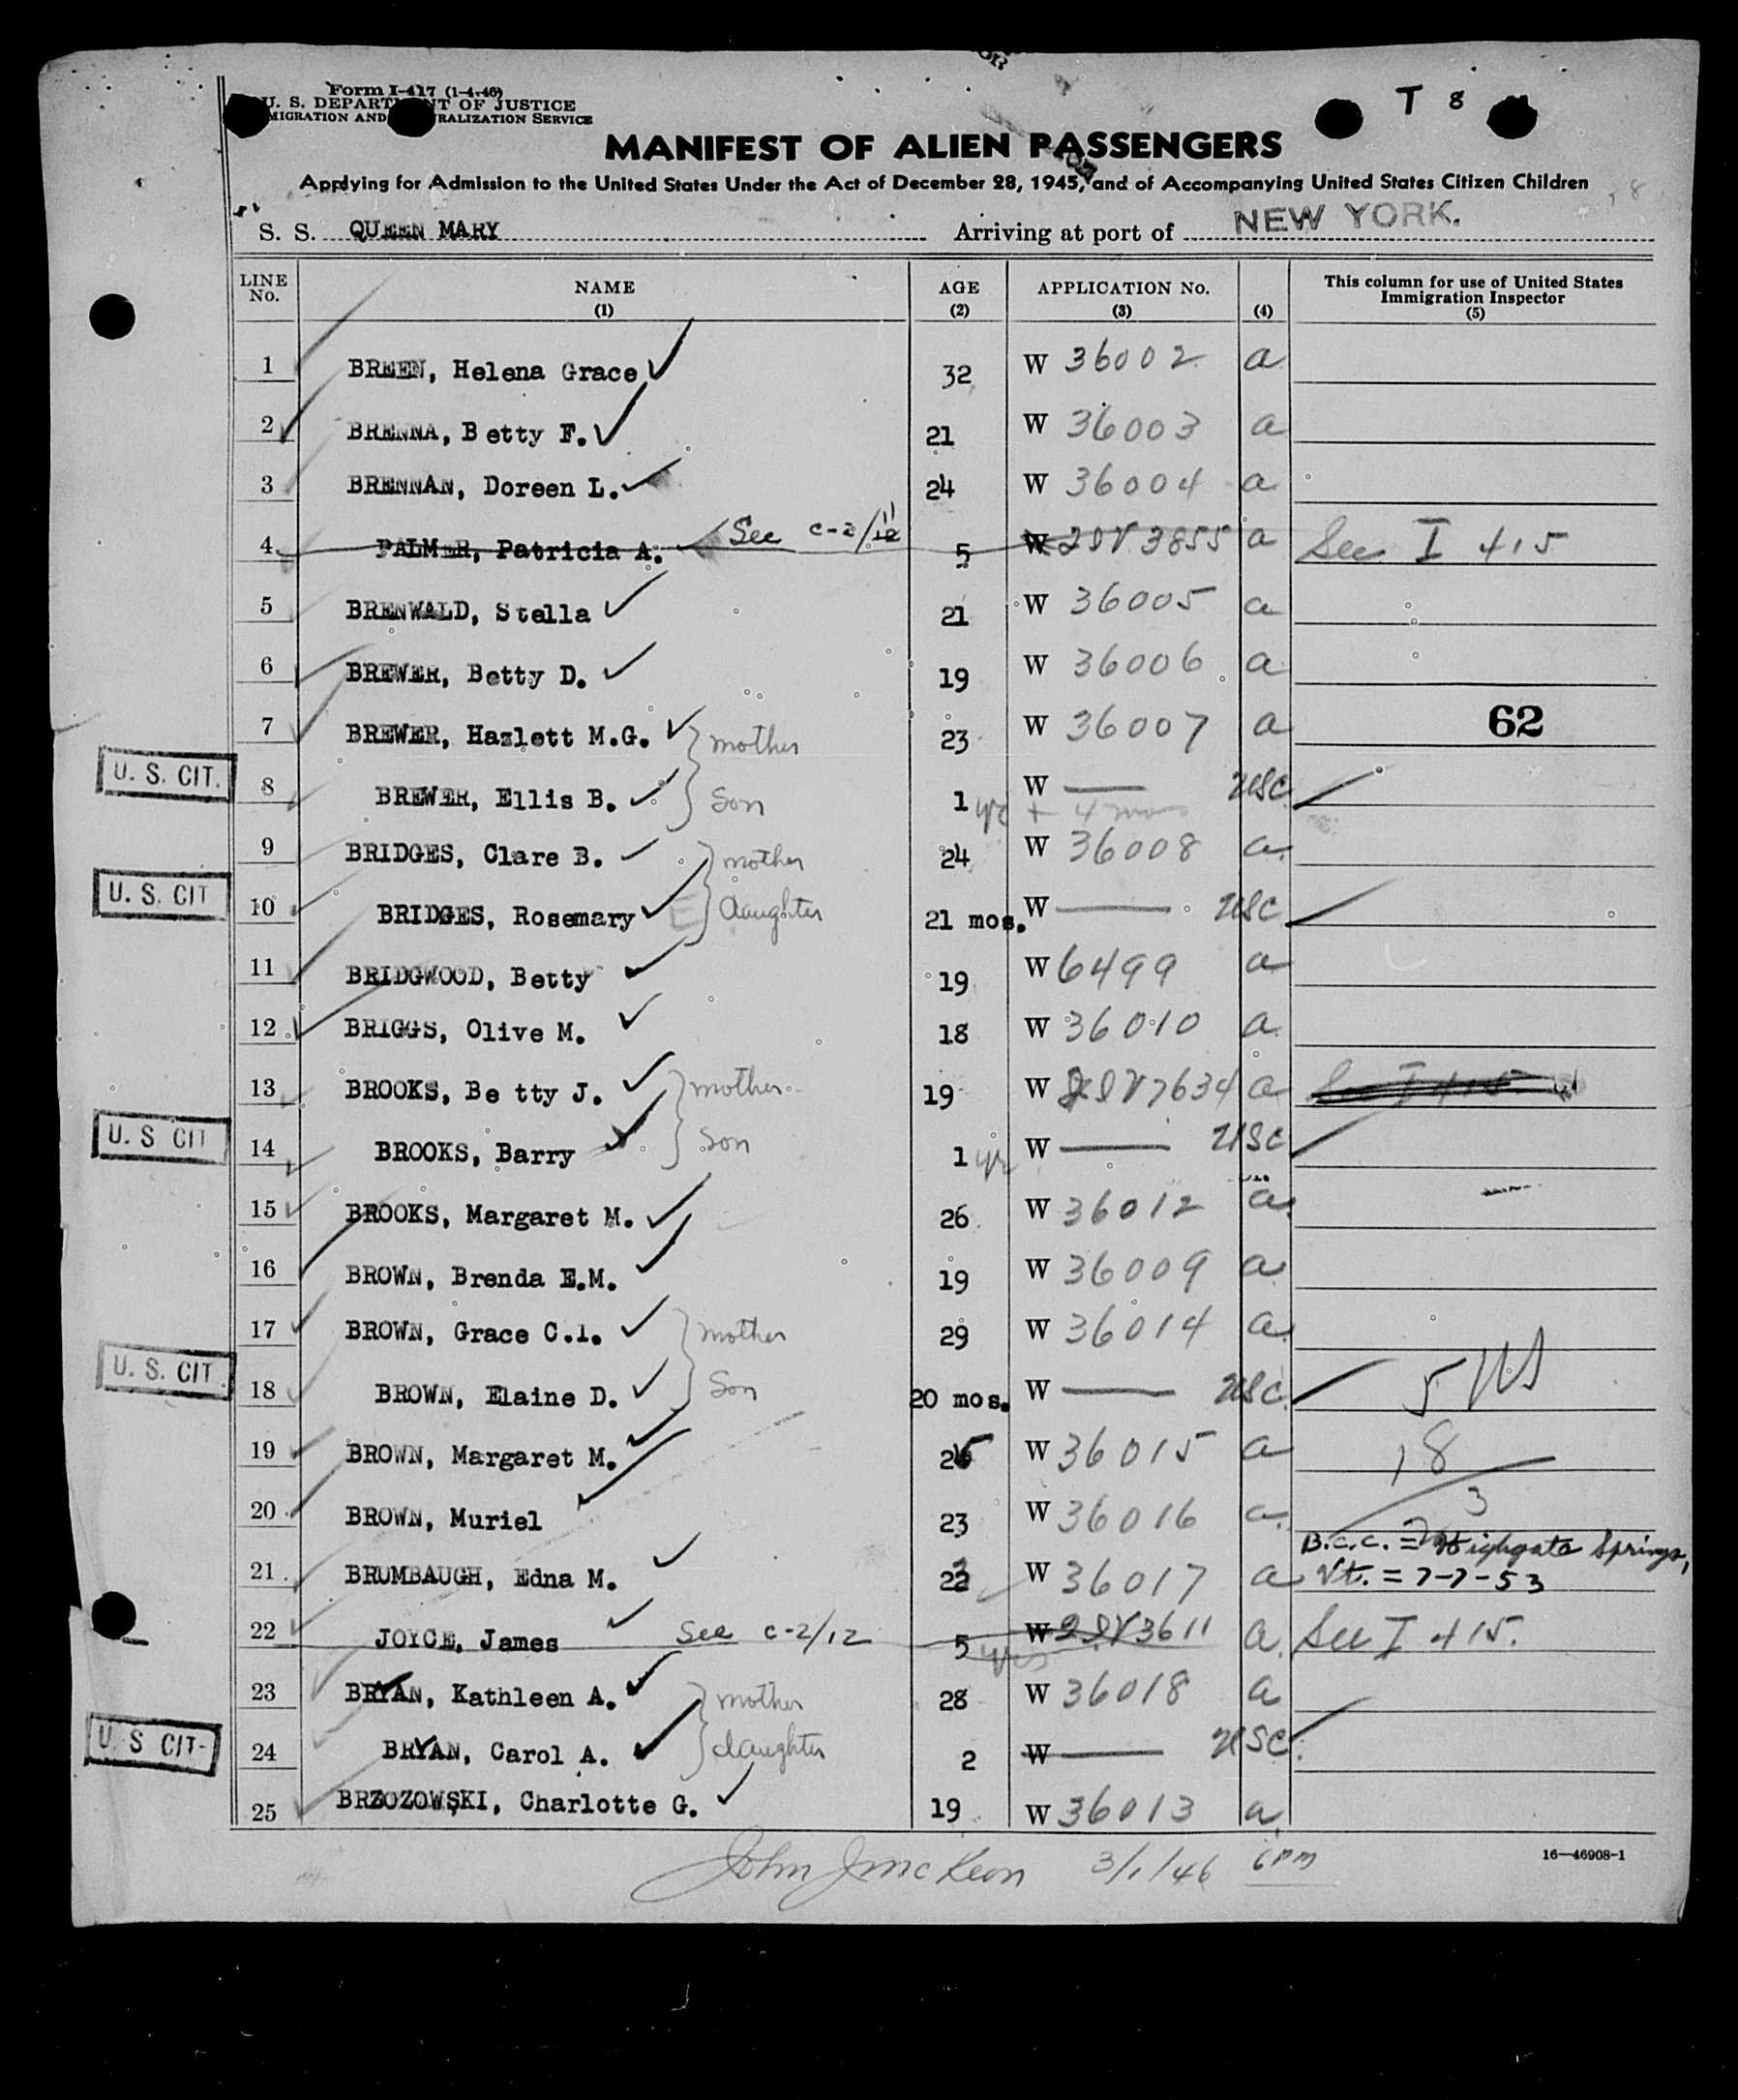 Form I-417 (1-4-46)
U. S. DEPARTMENT OF JUSTICE
MIGRATION AND RALIZATION SERVICE
T 8
MANIFEST OF ALIEN PASSENGERS
Applying for Admission to the United States Under the Act of December 28, 1945, and of Accompanying United States Citizen Children
S. S. QUEEN MARY Arriving at port of NEW YORK.
LINE No. NAME (1) AGE (2) APPLICATION No. (3) (4) This column for use of United States Immigration Inspector (5)
1 BREEN, Helena Grace 32 W 36002 a
2 BRENNA, Betty F. 21 W 36003 a
3 BRENNAN, Doreen L. 24 W 36004 a
4 PALMER, Patricia A. See C-2/ 5 W 2SV 3855 a See I 415
5 BRENWALD, Stella 21 W 36005 a
6 BREWER, Betty D. 19 W 36006 a
7 BREWER, Hazlett M.G. mother 23 W 36007 a 62
U. S. CIT. 8 BREWER, Ellis B. Son 1 yr + 4 mos W USC
9 BRIDGES, Clare B. mother 24 W 36008 a.
U. S. CIT 10 BRIDGES, Rosemary daughter 21 mos. W USC
11 BRIDGWOOD, Betty 19 W 6499 a
12 BRIGGS, Olive M. 18 W 36010 a
13 BROOKS, Be tty J. mother 19 W 2SV 7634 a See I 415
U. S CIT 14 BROOKS, Barry son 1 yr W USC
15 BROOKS, Margaret M. 26 W 36012 a
16 BROWN, Brenda E.M. 19 W 36009 a
17 BROWN, Grace C.I. mother 29 W 36014 a.
U. S. CIT. 18 BROWN, Elaine D. Son 20 mos. W USC. 5
19 BROWN, Margaret M. 25 W 36015 a 18
20 BROWN, Muriel 23 W 36016 a. 3
21 BRUMBAUGH, Edna M. 22 W 36017 a B.C.C. = Highgate Springs, Vt. = 7-7-53
22 JOYCE, James See C-2/12 5 yrs W 2SV 3611 a. See I 415.
23 BRYAN, Kathleen A. mother 28 W 36018 a
U. S CIT- 24 BRYAN, Carol A. daughter 2 W USC
25 BRZOZOWSKI, Charlotte G. 19 W 36013 a
John J McKeon 3/1/46 6 PM
16—46908-1